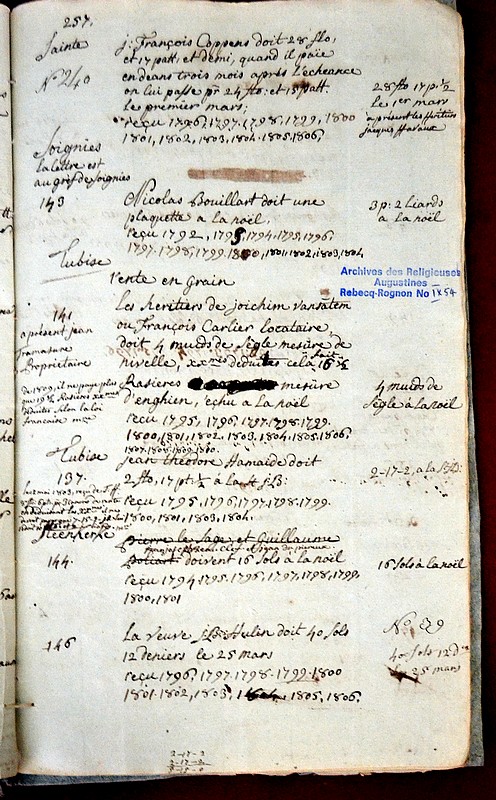 257.
Sainte
N° 240
j: François Coppens doit 28 flo,
et 17 patt, et demi, quand il paie
endeans trois mois après l'echeance
on lui passe pr 24 flo: et 15 patt
le premier mars;
reçu 1796, 1797, 1798, 1799, 1800
1801, 1802, 1803, 1804, 1805, 1806,
28 flo 17 p: 1/2
le 1er mars
a present les heritiers
jacques
Soignies
la lettre est
au gref de Soignies
143
Nicolas Bouillart doit une
plaquette a la noël,
reçu 1792, 1793, 1794, 1795, 1796,
1797, 1798, 1799, 1800, 1801, 1802, 1803, 1804
3 p: 2 liards
a la noël
Tubise
rente en Grain
Archives des Religieuses
Augustines
Rebecq-Rognon No 1x54
141
a présent jean
Propriétaire
Les heritiers de joichim vansatem
ou François Carlier locataire,
doit 4 muids de Segle mesure de
nivelle, xxmes deduites cela fait 16 1/2
Rasieres mesure
d'enghien, echu a la noël
reçu 1795, 1796, 1797, 1798, 1799.
1800, 1801, 1802, 1803, 1804, 1805, 1806,
1807, 1808, 1809, 1810.
4 muids de
Segle a la noël
de 1809, il ne paye plus
que 19 1/2 Rasieres xxmes
deduites, selon la loi
francaise
Tubise
137.
jean theodore Hamaide doit
2 flo, 17 pt: 1/2 à la st jb:
reçu 1795, 1796, 1797, 1798, 1799.
1800, 1801, 1803, 1804.
2-17-2, a la st jb:
Steenkerke
144.
Pierre le Sage, et Guillaume
doivent 16 Sols à la noël
reçu 1794, 1795, 1796, 1797, 1798, 1799,
1800, 1801
16 Sols à la noël
146
La veuve j: B: Hulin doit 40 Sols
12 deniers le 25 mars
reçu 1796, 1797, 1798, 1799, 1800
1801, 1802, 1803, 1804, 1805, 1806,
40 Sols 12 drs
le 25 mars
2-17-2
2-17-2